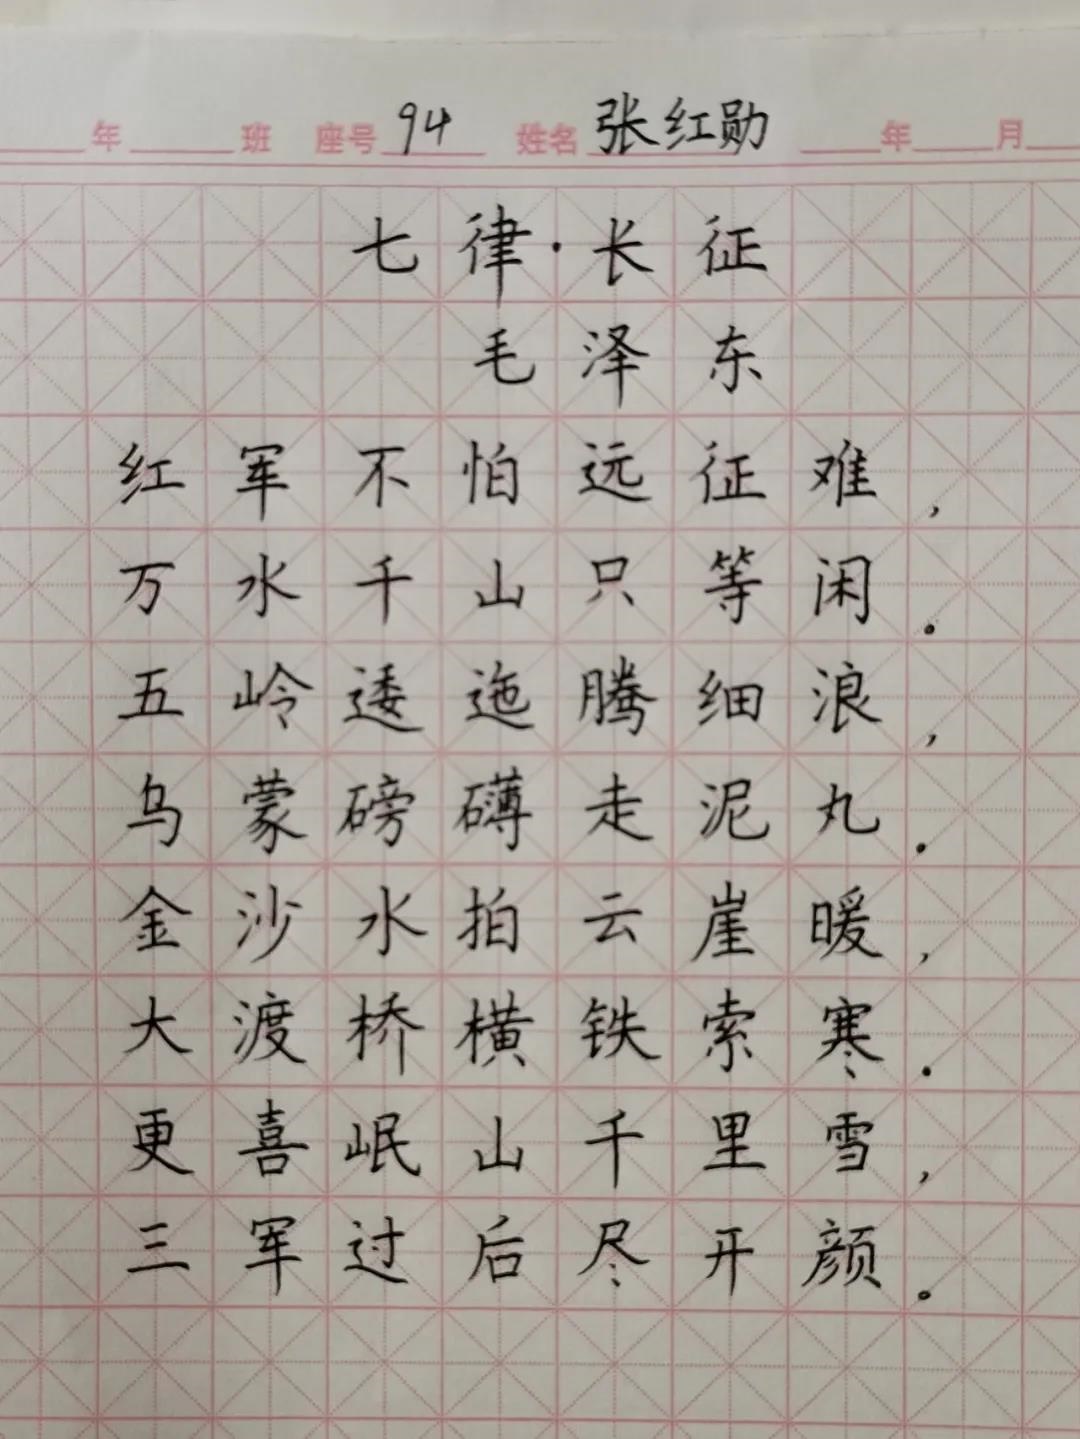 年 班 座号 94 姓名 张红勋 年 月
七律·长征
毛泽东
红军不怕远征难,
万水千山只等闲.
五岭逶迤腾细浪,
乌蒙磅礴走泥丸.
金沙水拍云崖暖,
大渡桥横铁索寒.
更喜岷山千里雪,
三军过后尽开颜。